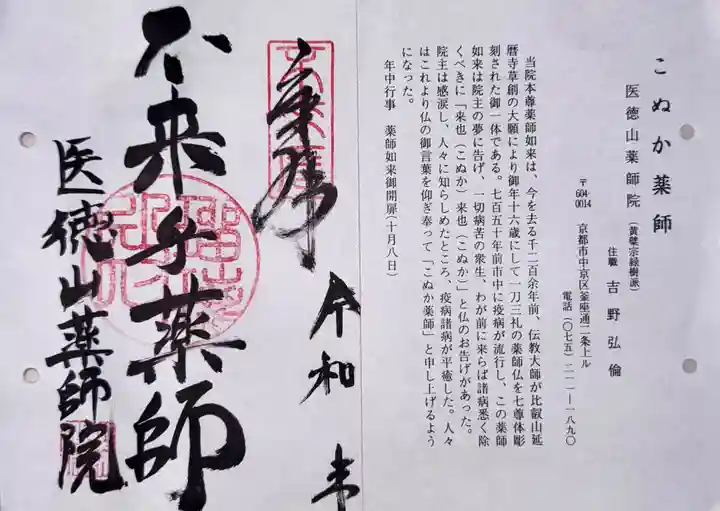 こぬか薬師
医徳山薬師院（黄檗宗緑樹派）
住職 吉野弘倫
〒604-0014 京都市中京区釜座通二条上ル
電話（〇七五）二一一―一八九〇
当院本尊薬師如来は、今を去る千二百余年前、伝教大師が比叡山延
暦寺草創の大願により御年十六歳にして一刀三礼の薬師仏を七尊体彫
刻された御一体である。七百五十年前市中に疫病が流行し、この薬師
如来は院主の夢に告げ、一切病苦の衆生、わが前に来らば諸病悉く除
くべきに「来也（こぬか）来也（こぬか）」と仏のお告げがあった。
院主は感涙し、人々に知らしめたところ、疫病諸病が平癒した。人々
はこれより仏の御言葉を仰ぎ奉って「こぬか薬師」と申し上げるよう
になった。
年中行事 薬師如来御開扉（十月八日）
奉拝
令和 未
不来乎薬師
医徳山薬師院